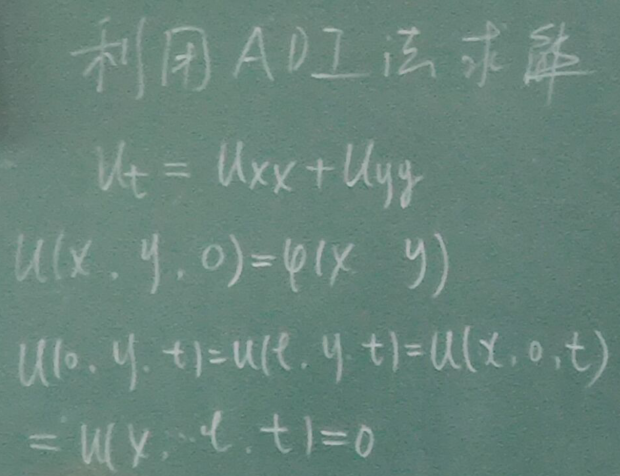 利用ADI法求解
u_t = u_xx + u_yy
u(x, y, 0) = φ(x y)
u(0, y, t) = u(ℓ, y, t) = u(x, 0, t)
= u(x, ℓ, t) = 0